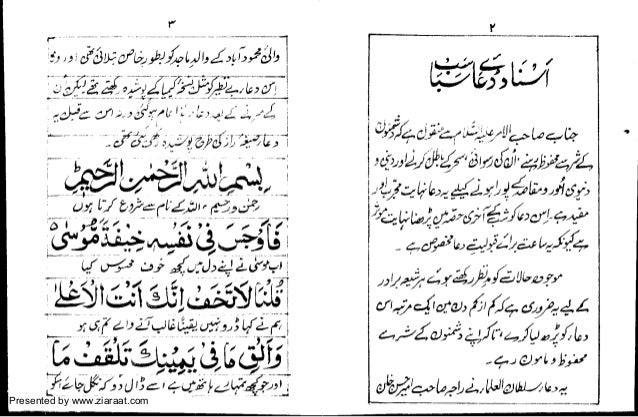 ۲
اسناد دعائے سباسب
جناب صاحب الامر علیہ السّلام سے منقول ہے کہ دشمنوں
کے شر سے محفوظ رہنے، اُن کی رسوائی، سحر کے باطل کرنے اور دینی و
دنیوی امور اور مقاصد کے پورا ہونے کیلئے یہ دعا نہایت مجرّب اور
مفید ہے۔ اِس دعا کو شب کے آخری حصّہ میں پڑھنا نہایت موثر
ہے کیونکہ یہ ساعت برائے قبولیتِ دعا مخصوص ہے۔
موجودہ حالات کو مدنظر رکھتے ہوئے ہر شیعہ برادر
کے لیے یہ ضروری ہے کہ کم از کم دن میں ایک مرتبہ اس
دعا کو پڑھ لیا کرے، تاکہ اپنے دشمنوں کے شر سے
محفوظ و مامون رہے۔
یہ دعا سرکار سلطان العلماء نے راجہ صاحب امیر حسن خان
۳
والئ محمود آباد کے والد ماجد کو بطور خاص بتلائی تھی اور وہ
اِس دعا بے نظیر کو مثل نسخہ کیمیا کے پوشیدہ رکھتے تھے لیکن اُن
کے مرنے کے بعد دعا عام ہو گئی ورنہ اس سے قبل یہ
دعا صیغہ راز کی طرح پوشیدہ رکھی گئی تھی۔
بِسْمِ اللّٰہِ الرَّحْمٰنِ الرَّحِیْمِ
رحمٰن و رحیم اللہ کے نام سے شروع کرتا ہوں
فَاَوْجَسَ فِیْ نَفْسِہٖ خِیْفَۃً مُّوْسٰی
اب موسیٰ نے اپنے دل میں کچھ خوف محسوس کیا
قُلْنَا لَا تَخَفْ اِنَّكَ اَنْتَ الْاَعْلٰی
ہم نے کہا ڈرو نہیں یقیناً غالب آنے والے تم ہی ہو
وَاَلْقِ مَا فِیْ یَمِیْنِكَ تَلْقَفْ مَا
اور جو کچھ تمہارے ہاتھ میں ہے اسے ڈال دو کہ نگل جائے
Presented by www.ziaraat.com